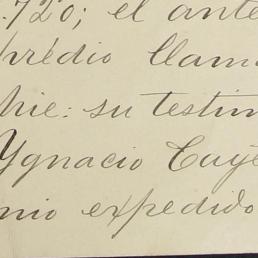 .720; el ante
predio llam
hie: su testim
Ygnacio Caye
nio expedido